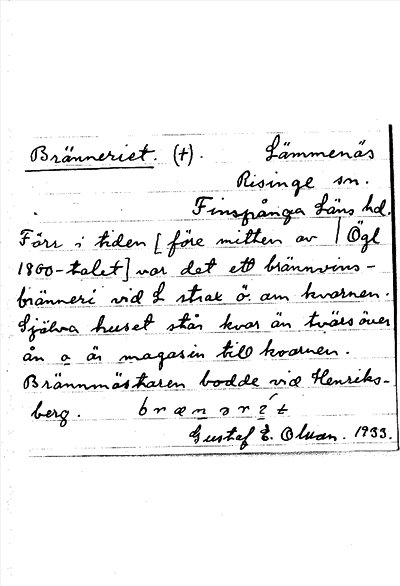 Bränneriet. (+). Lämmenäs
Risinge sn.
Finspånga Läns hd.
Förr i tiden [före mitten av | Ögl
1800-talet] var det ett brännvins-
bränneri vid L strax ö. om kvarnen.
Själva huset står kvar än tvärs över
ån o är magasin till kvarnen.
Brännmästaren bodde vid Henriks-
berg.
Gustaf E. Olsson. 1933.